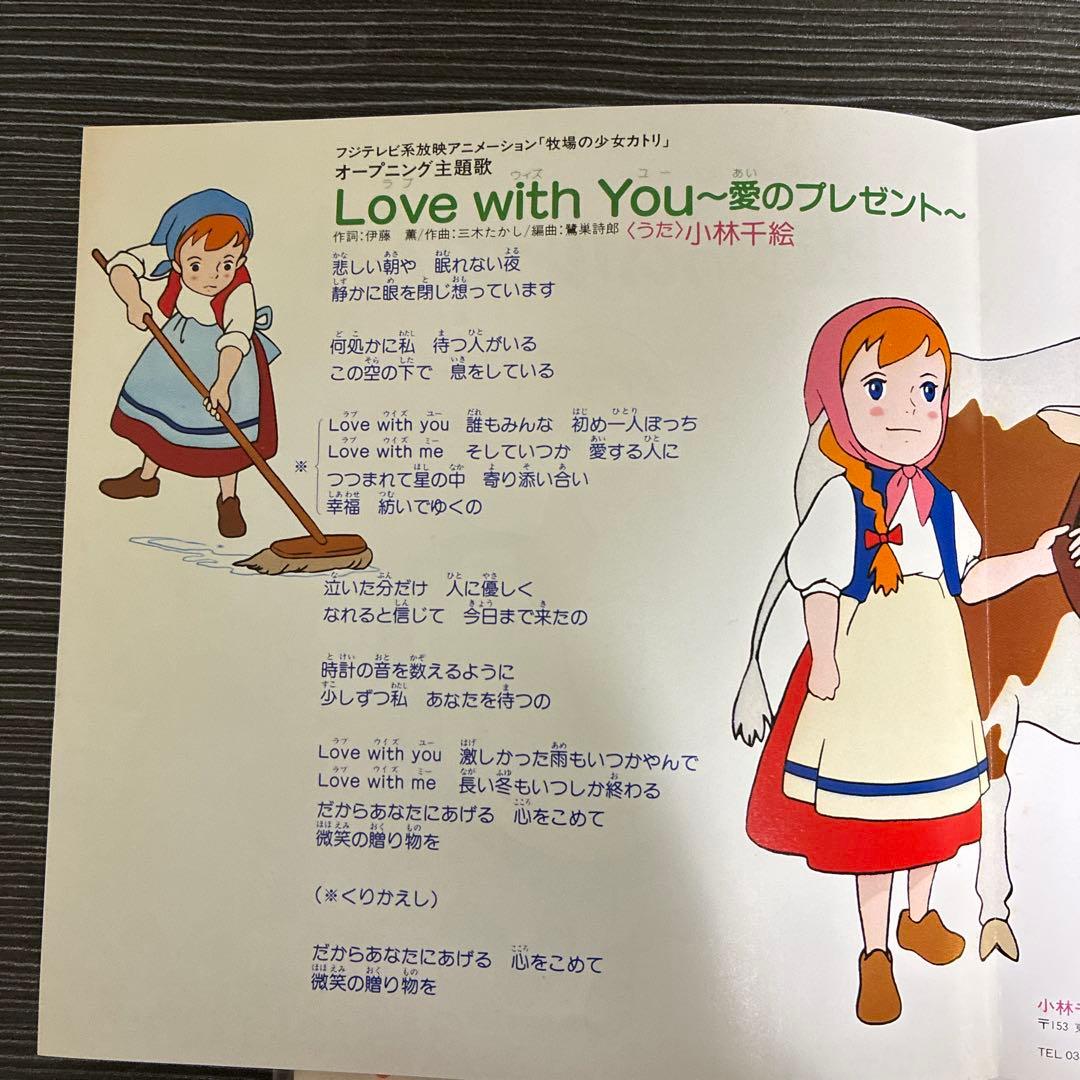 フジテレビ系放映アニメーション「牧場の少女カトリ」
オープニング主題歌
Love with You～愛のプレゼント～
作詞:伊藤 薫/作曲:三木たかし/編曲:鷺巣詩郎 〈うた〉小林千絵
悲しい朝や 眠れない夜
静かに眼を閉じ想っています
何処かに私 待つ人がいる
この空の下で 息をしている
※
Love with you 誰もみんな 初め一人ぼっち
Love with me そしていつか 愛する人に
つつまれて星の中 寄り添い合い
幸福 紡いでゆくの
泣いた分だけ 人に優しく
なれると信じて 今日まで来たの
時計の音を数えるように
少しずつ私 あなたを待つの
Love with you 激しかった雨もいつかやんで
Love with me 長い冬もいつしか終わる
だからあなたにあげる 心をこめて
微笑の贈り物を
(※くりかえし)
だからあなたにあげる 心をこめて
微笑の贈り物を
小林
〒153
TEL 03